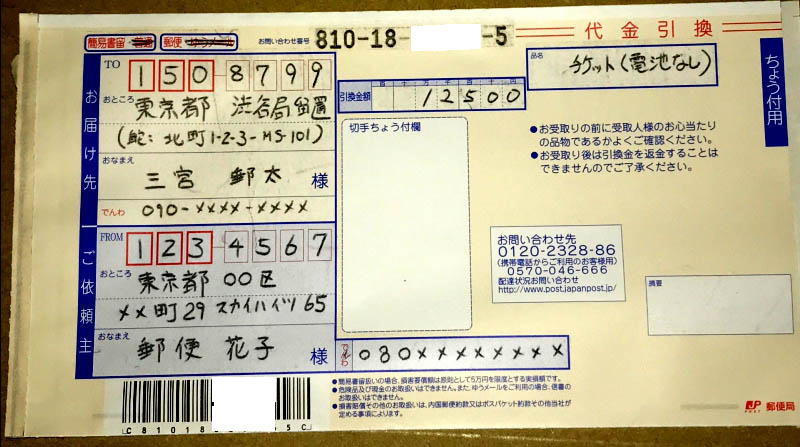 簡易書留・普通 郵便・ゆうメール お問い合わせ番号 810-18- -5
代金引換
TO
お届け先
150-8799
おところ
東京都 渋谷局留置
北町1-2-3-MS-101)
おなまえ
三宮 郵太 様
でんわ 090-××××-××××
引換金額 百 十 万 千 百 十 円
12500
品名
チケット(電池なし)
ちょう付用
切手ちょう付欄
●お受取りの前に受取人様のお心当たり
の品物であるかよくご確認ください。
●お受取り後は引換金を返金することは
できませんのでご了承ください。
FROM
ご依頼主
123-4567
おところ
東京都 〇〇区
××町29 スカイハイツ65
おなまえ
郵便 花子 様
でんわ 080××××××××
お問い合わせ先
0120-2328-86
(携帯電話からご利用のお客様用)
0570-046-666
配達状況お問い合わせ
http://www.post.japanpost.jp/
摘要
●簡易書留扱いの場合、損害要償額は原則として5万円を限度とする実損額です。
●危険品及び現金のお取扱いはできません。また、ゆうメールをご利用の場合、信書の
お取扱いはできません。
●損害賠償その他のお取扱いは、内国郵便約款又はポスパケット約款その他当社が
定める事項によります。
C81018 5C
JP POST 郵便局